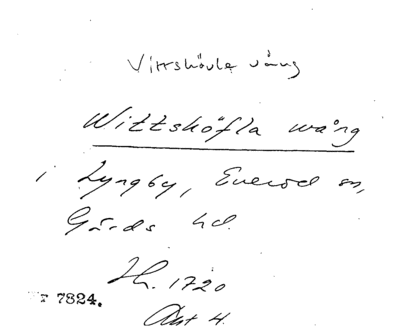 Vittskövle vång
Wittsköfla wång
i Lyngby, Everöd sn,
Gärds hd.
Jh. 1720
7824.
Akt 4.